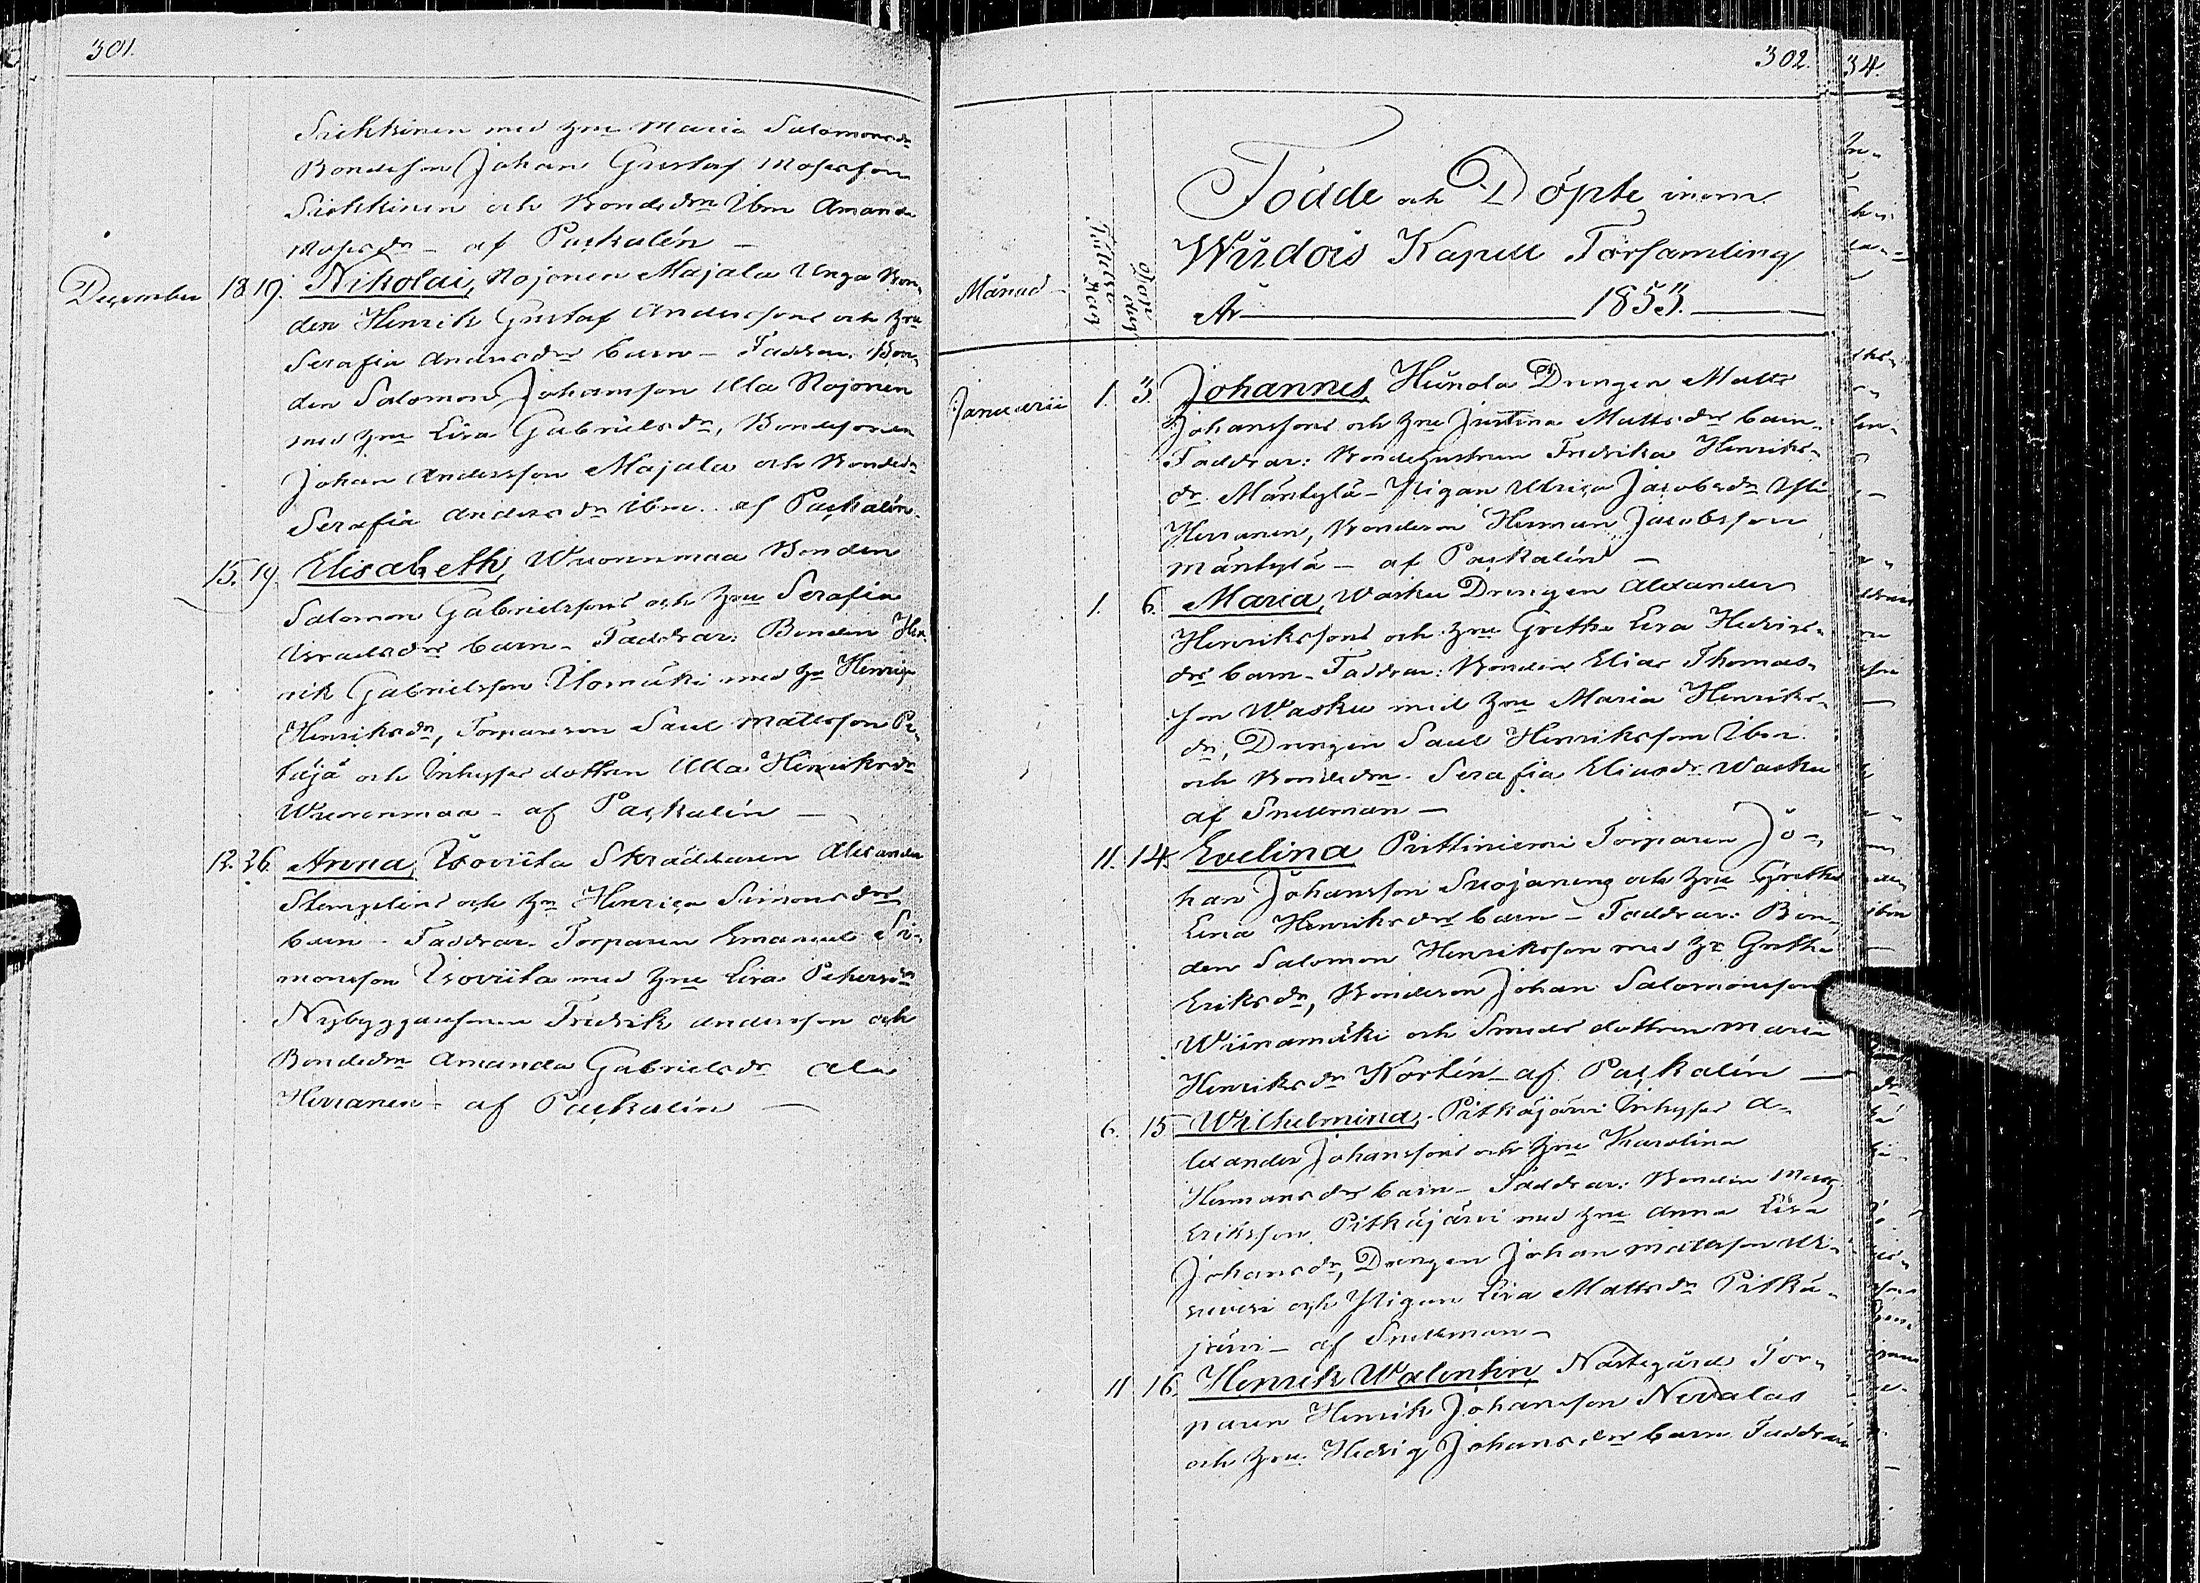 301.
Siekkinen med hru Maria Salomonsdr
Bondeson Johan Gustaf Mosesson
Siekkinen och Bondedrn Ibm Amanda
Mosesdr - af Paskalén -
December 18 19. Nikolai, Rojonen Majala Unga Bon-
den Henrik Gustaf Anderssons och hru
Serafia Andersdrs barn - Faddrar. Bon-
den Salomon Johansson Ala Rojonen
med hru Lisa Gabrielsdr, Bondesonen
Johan Andersson Majala och Bondedr
Serafia Andersdr Ibm. af Paskalén.
15. 19. Elisabeth, Wuorenmaa Bonden
Salomon Gabrielssons och hru Serafia
Israelsdrs barn - Faddrar: Bonden Hen-
rik Gabrielsson Ilomäki med hr Henrica
Henriksdr, Torpareson Saul Mattsson Pe-
täjä och Inhyses dottren Ulla Henriksdr
Wuorenmaa - af Paskalén -
12. 26. Anna, Isoviita Skräddaren Alexander
Stengelins och hru Henrica Simonsdrs
barn - Faddrar. Torparen Emanuel Si-
monsson Isoviita med hru Lisa Petersdr
Nybyggaresonen Fredrik Andersson och
Bondedrn Amanda Gabrielsdr Ala
Herranen - af Paskalén -
302.
34.
Födde och Döpte inom
Wiidois Kapell Församling
År 1853.
Månad
Födelse dag
Dop dag
Januarii 1. 3. Johannes, Hunola Drengen Matts
Johanssons och hru Justina Mattsdrs barn.
Faddrar: Bondehustrun Fredrika Henriks-
dr Mäntylä - Pigan Ulrica Jacobsdr Yli
Herranen, Bondeson Herman Jacobsson
Mäntylä - af Paskalén -
1. 6. Maria, Wasku Drengen Alexander
Henrikssons och hru Gretha Lisa Hedvigs-
drs barn - Faddrar: Bonden Elias Thomas-
son Wasku med hru Maria Henriks-
dr, Drengen Saul Henriksson Ibm.
och Bondedrn. Serafia Eliasdr Wasku
af Snellman -
11. 14. Evelina Pettiniemi Torparen Jo-
han Johansson Suojanens och hru Gretha
Lisa Henriksdrs barn - Faddrar: Bon-
den Salomon Henriksson med hr Greta
Eriksdr, Bondeson Johan Salomonsson
Wiinamäki och Smeds dottren Maria
Henriksdr Kortén - af Paskalén -
6. 15 Wilhelmina, Pitkäjärvi Inhyses A-
lexander Johanssons och hru Karolina
Hermansdrs barn - Faddrar: Bonden Matts
Eriksson Pitkäjärvi med hru Anna Lisa
Johansdr, Drengen Johan Mattsson
och Pigan Lisa Mattsdr Pitkä-
järvi - af Snellman -
11 16. Henrik Walentin, Nästegårds Tor-
paren Henrik Johansson Nevalas
och hru Hedvig Johansdrs barn Faddrar